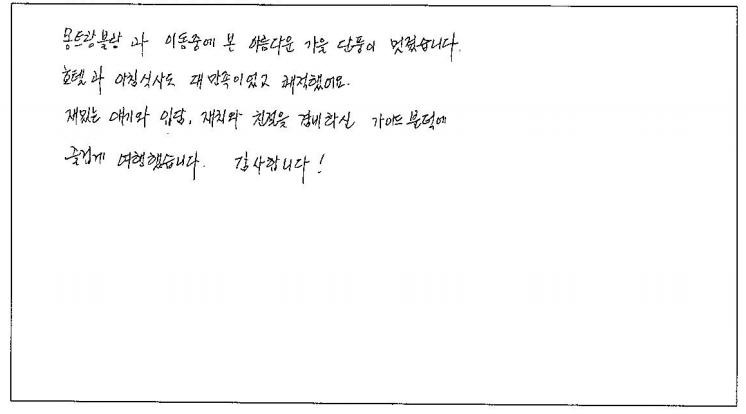 몽트랑블랑 과 이동중에 본 아름다운 가을 단풍이 멋졌습니다.
호텔과 아침식사도 대만족이었고 쾌적했어요.
재밌는 얘기와 입담, 재치와 친절을 겸비하신 가이드 분덕에
즐겁게 여행했습니다. 감사합니다!